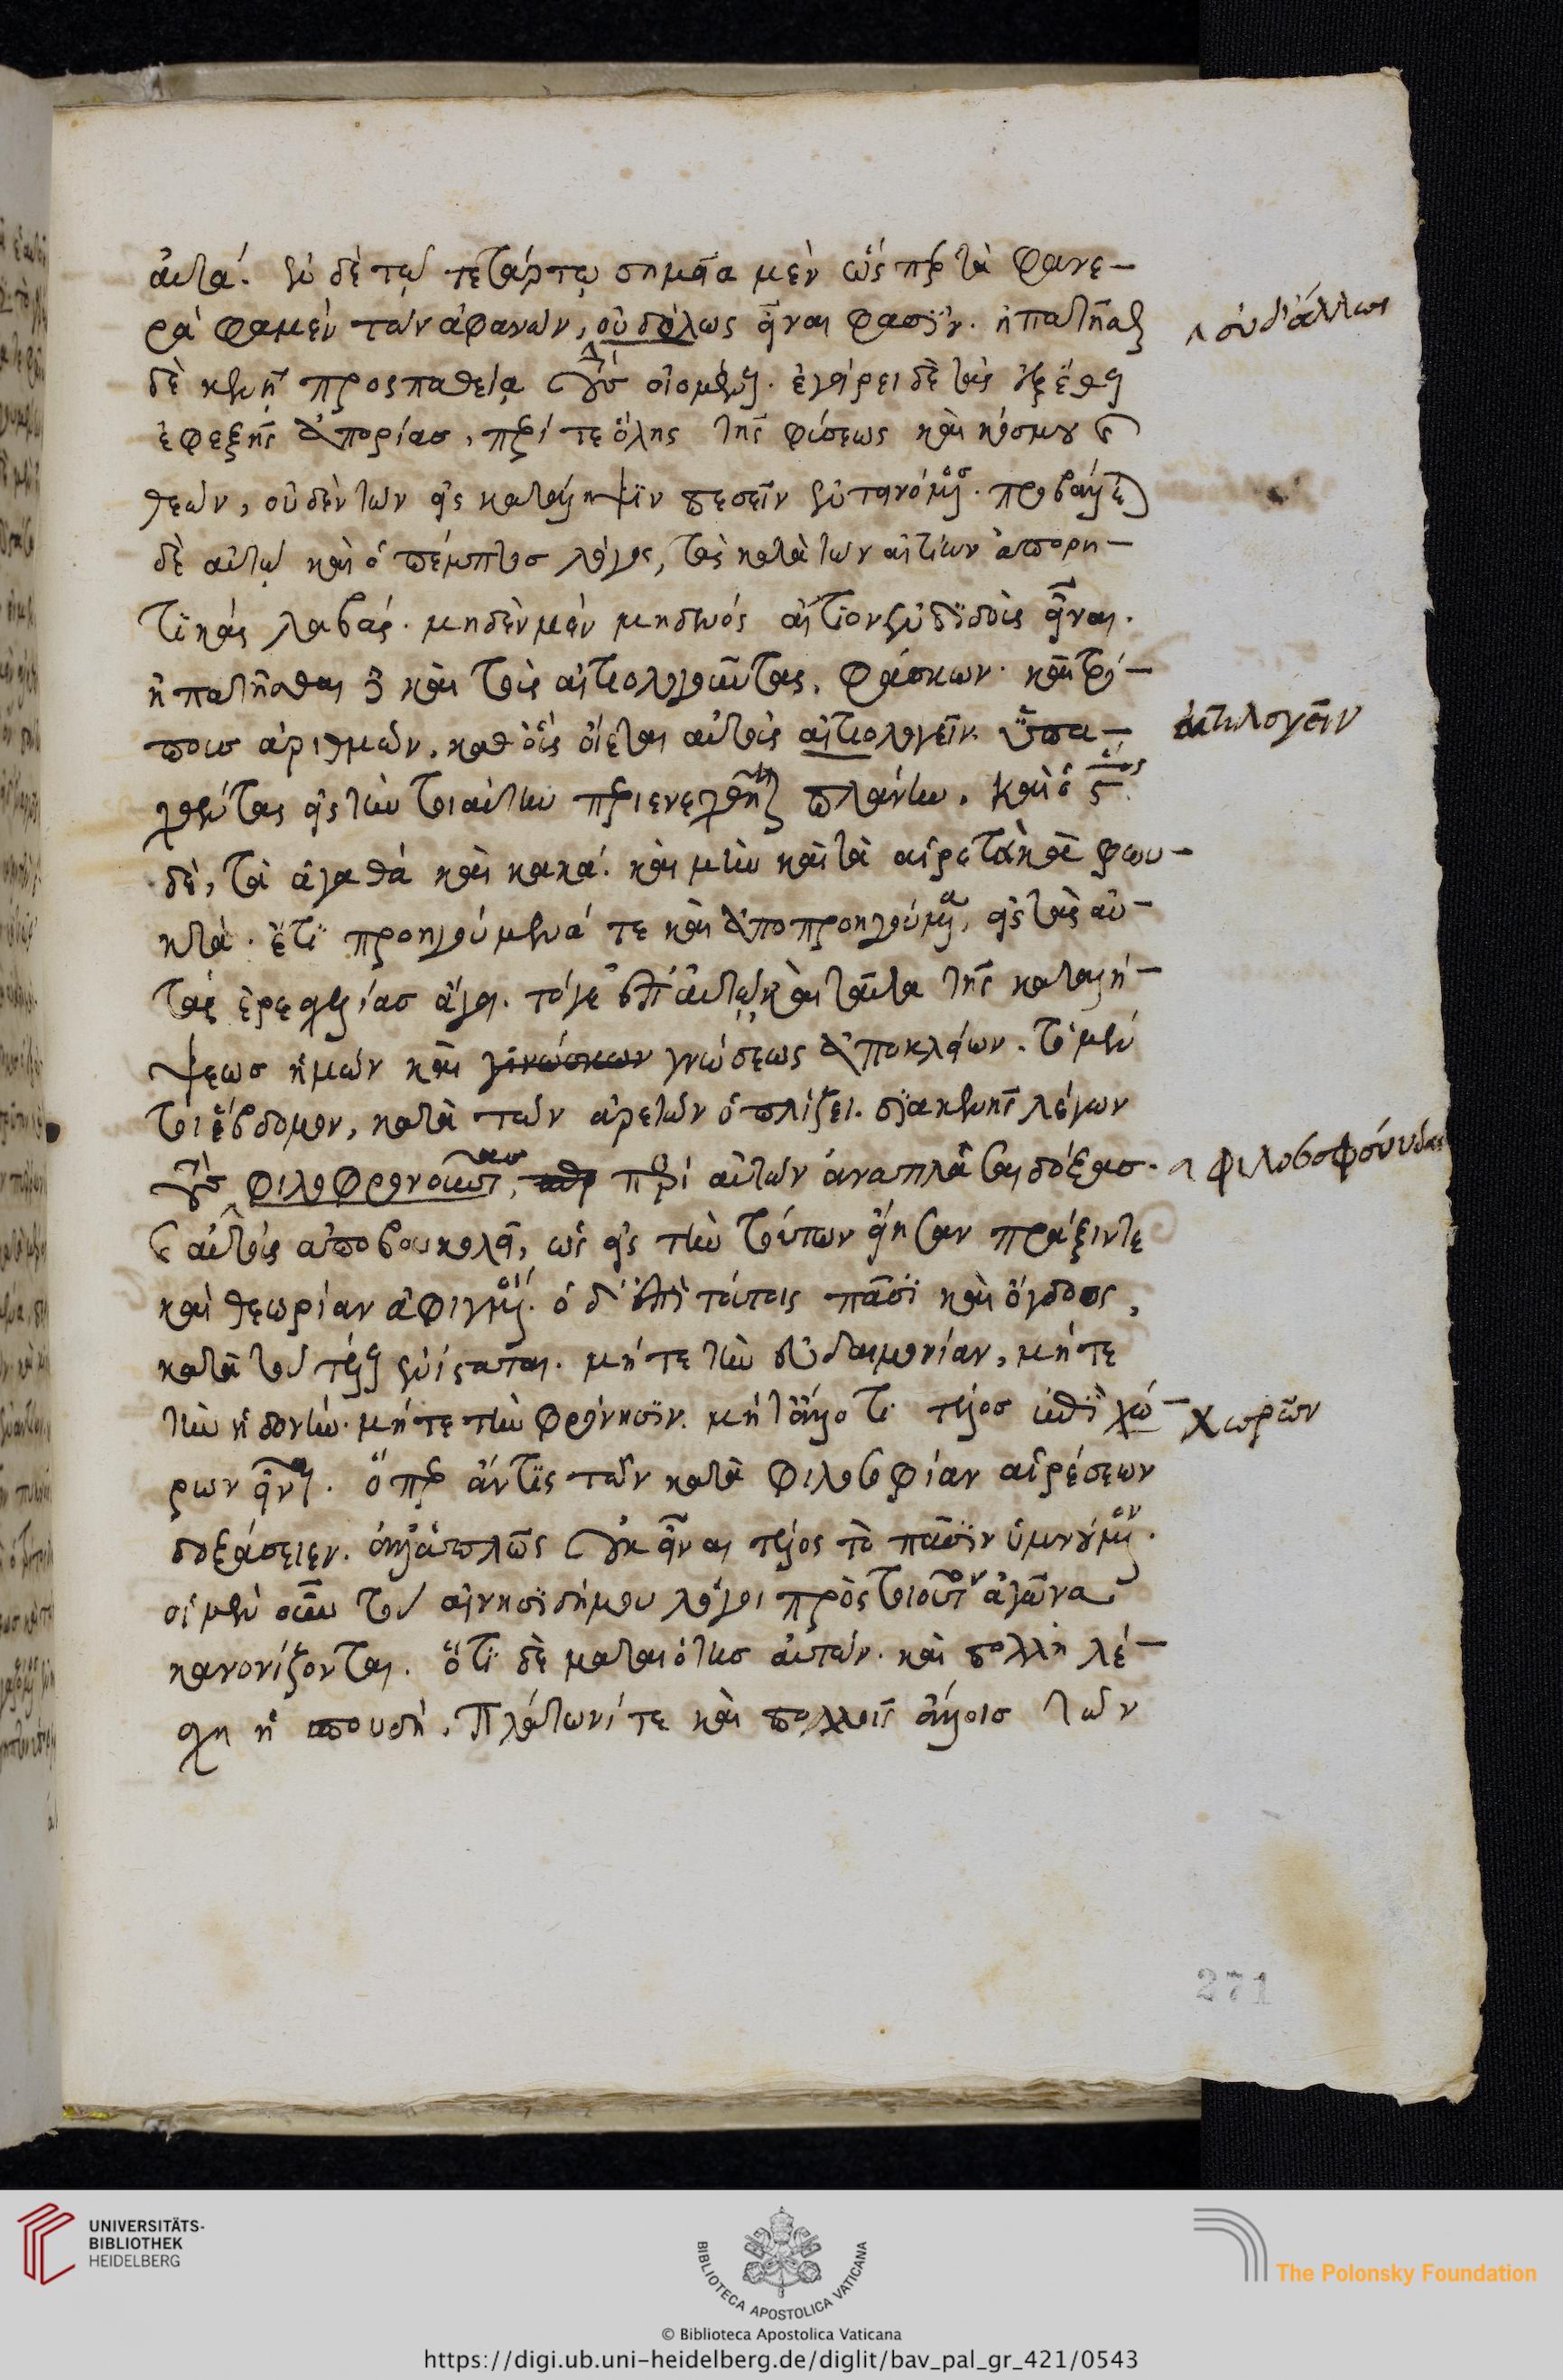 αὐτά. ἐν δὲ τῷ τετάρτῳ σημεῖα μὲν ὥς περ τὰ φανε-
ρά φαμεν τῶν ἀφανῶν, οὐδόλως εἶναι φασΐν. ἠπατῆσθαι
δὲ κενῆ προσπαθεία τοὺς οἰομένους. ἐγείρει δὲ τοὺς ἐξ ἔθους
ἐφεξῆς ἀπορίας, περί τε ὅλης τῆς φύσεως καὶ κόσμου καὶ
θεῶν, οὐδὲν τῶν εἰς κατάληψϊν πεσεῖν ἐντεινόμενος. προβάλλεται
δὲ αὐτῷ καὶ ὁ πέμπτος λόγος, τὰς κατὰ τῶν αἰτίων ἀπορη-
τϊκάς λαβάς. μηδὲν μὲν μηδενός αἴτϊον ἐνδϊδοὺς εἶναι.
ἠπατῆσθαι δὲ καὶ τοὺς αἰτιολογοῦντας, φάσκων. καὶ τρό-
πους ἀριθμῶν, καθ οὓς οἴεται αὐτοὺς αἰτιολογεῖν ὑπα-
χθέντας εἰς τὴν τοιαύτην περιενεχθῆναι πλάνην. καὶ ὁ ϛος
δὲ, τὰ ἀγαθά καὶ κακά. καὶ μὴν καὶ τὰ αἱρετὰ καὶ φευ-
κτά. ἔτϊ προηγούμενά τε καὶ ἀποπροηγούμενα, εἰς τὰς αὐ-
τάς ἐρεσχελίας ἄγει. τόγε ἐπ αὐτῷ καὶ ταῦτα τῆς καταλή-
ψεως ἡμῶν καὶ γινώσκων γνώσεως ἀποκλείων. τὸ μὲν
τοι ἕβδομον, κατὰ τῶν ἀρετῶν ὁπλίζει. διακενῆς λέγων
τοὺς φιλοφρονοῦντας, περὶ αὐτῶν ἀναπλάσαι δόξας.
καὶ αὐτοὺς ἀποβουκολεῖν, ὡς εἰς τὴν τούτων εἴησαν πρᾶξιν τε
καὶ θεωρίαν ἀφιγμένοι. ὁ δ' ἐπὶ τούτοις πᾶσϊ καὶ ὄγδοος,
κατὰ τοῦ τέλους ἐνίσταται. μήτε τὴν εὐδαιμονίαν, μήτε
τὴν ἡδονήν. μήτε τὴν φρόνησϊν. μήτ ἄλλο τι τέλος ἐπϊχώ-
ρων εἶναι. ὅπερ ἄν τϊς τῶν κατὰ φιλοσοφίαν αἱρέσεων
δοξάσειεν. ἀλλ' ἁπλῶς οὐκ εἶναι τέλος τὸ πᾶσϊν ὑμνούμενον.
οἱ μὲν οὖν τοῦ αἰνησϊδήμου λόγοι πρὸς τοιοῦτον ἀγῶνα
κανονίζονται. ὅτϊ δὲ ματαιότης αὐτῶν. καὶ πολλὴ λέ-
σχη ἡ σπουδὴ. Πλάτωνί τε καὶ πολλοῖς ἄλλοις τῶν
οὐδ' ἄλλως
αἰτιλογεῖν
φιλοσοφοῦνδας
χωρῶν
271
UNIVERSITÄTS-
BIBLIOTHEK
HEIDELBERG
BIBLIOTECA APOSTOLICA VATICANA
The Polonsky Foundation
© Biblioteca Apostolica Vaticana
https://digi.ub.uni-heidelberg.de/diglit/bav_pal_gr_421/0543